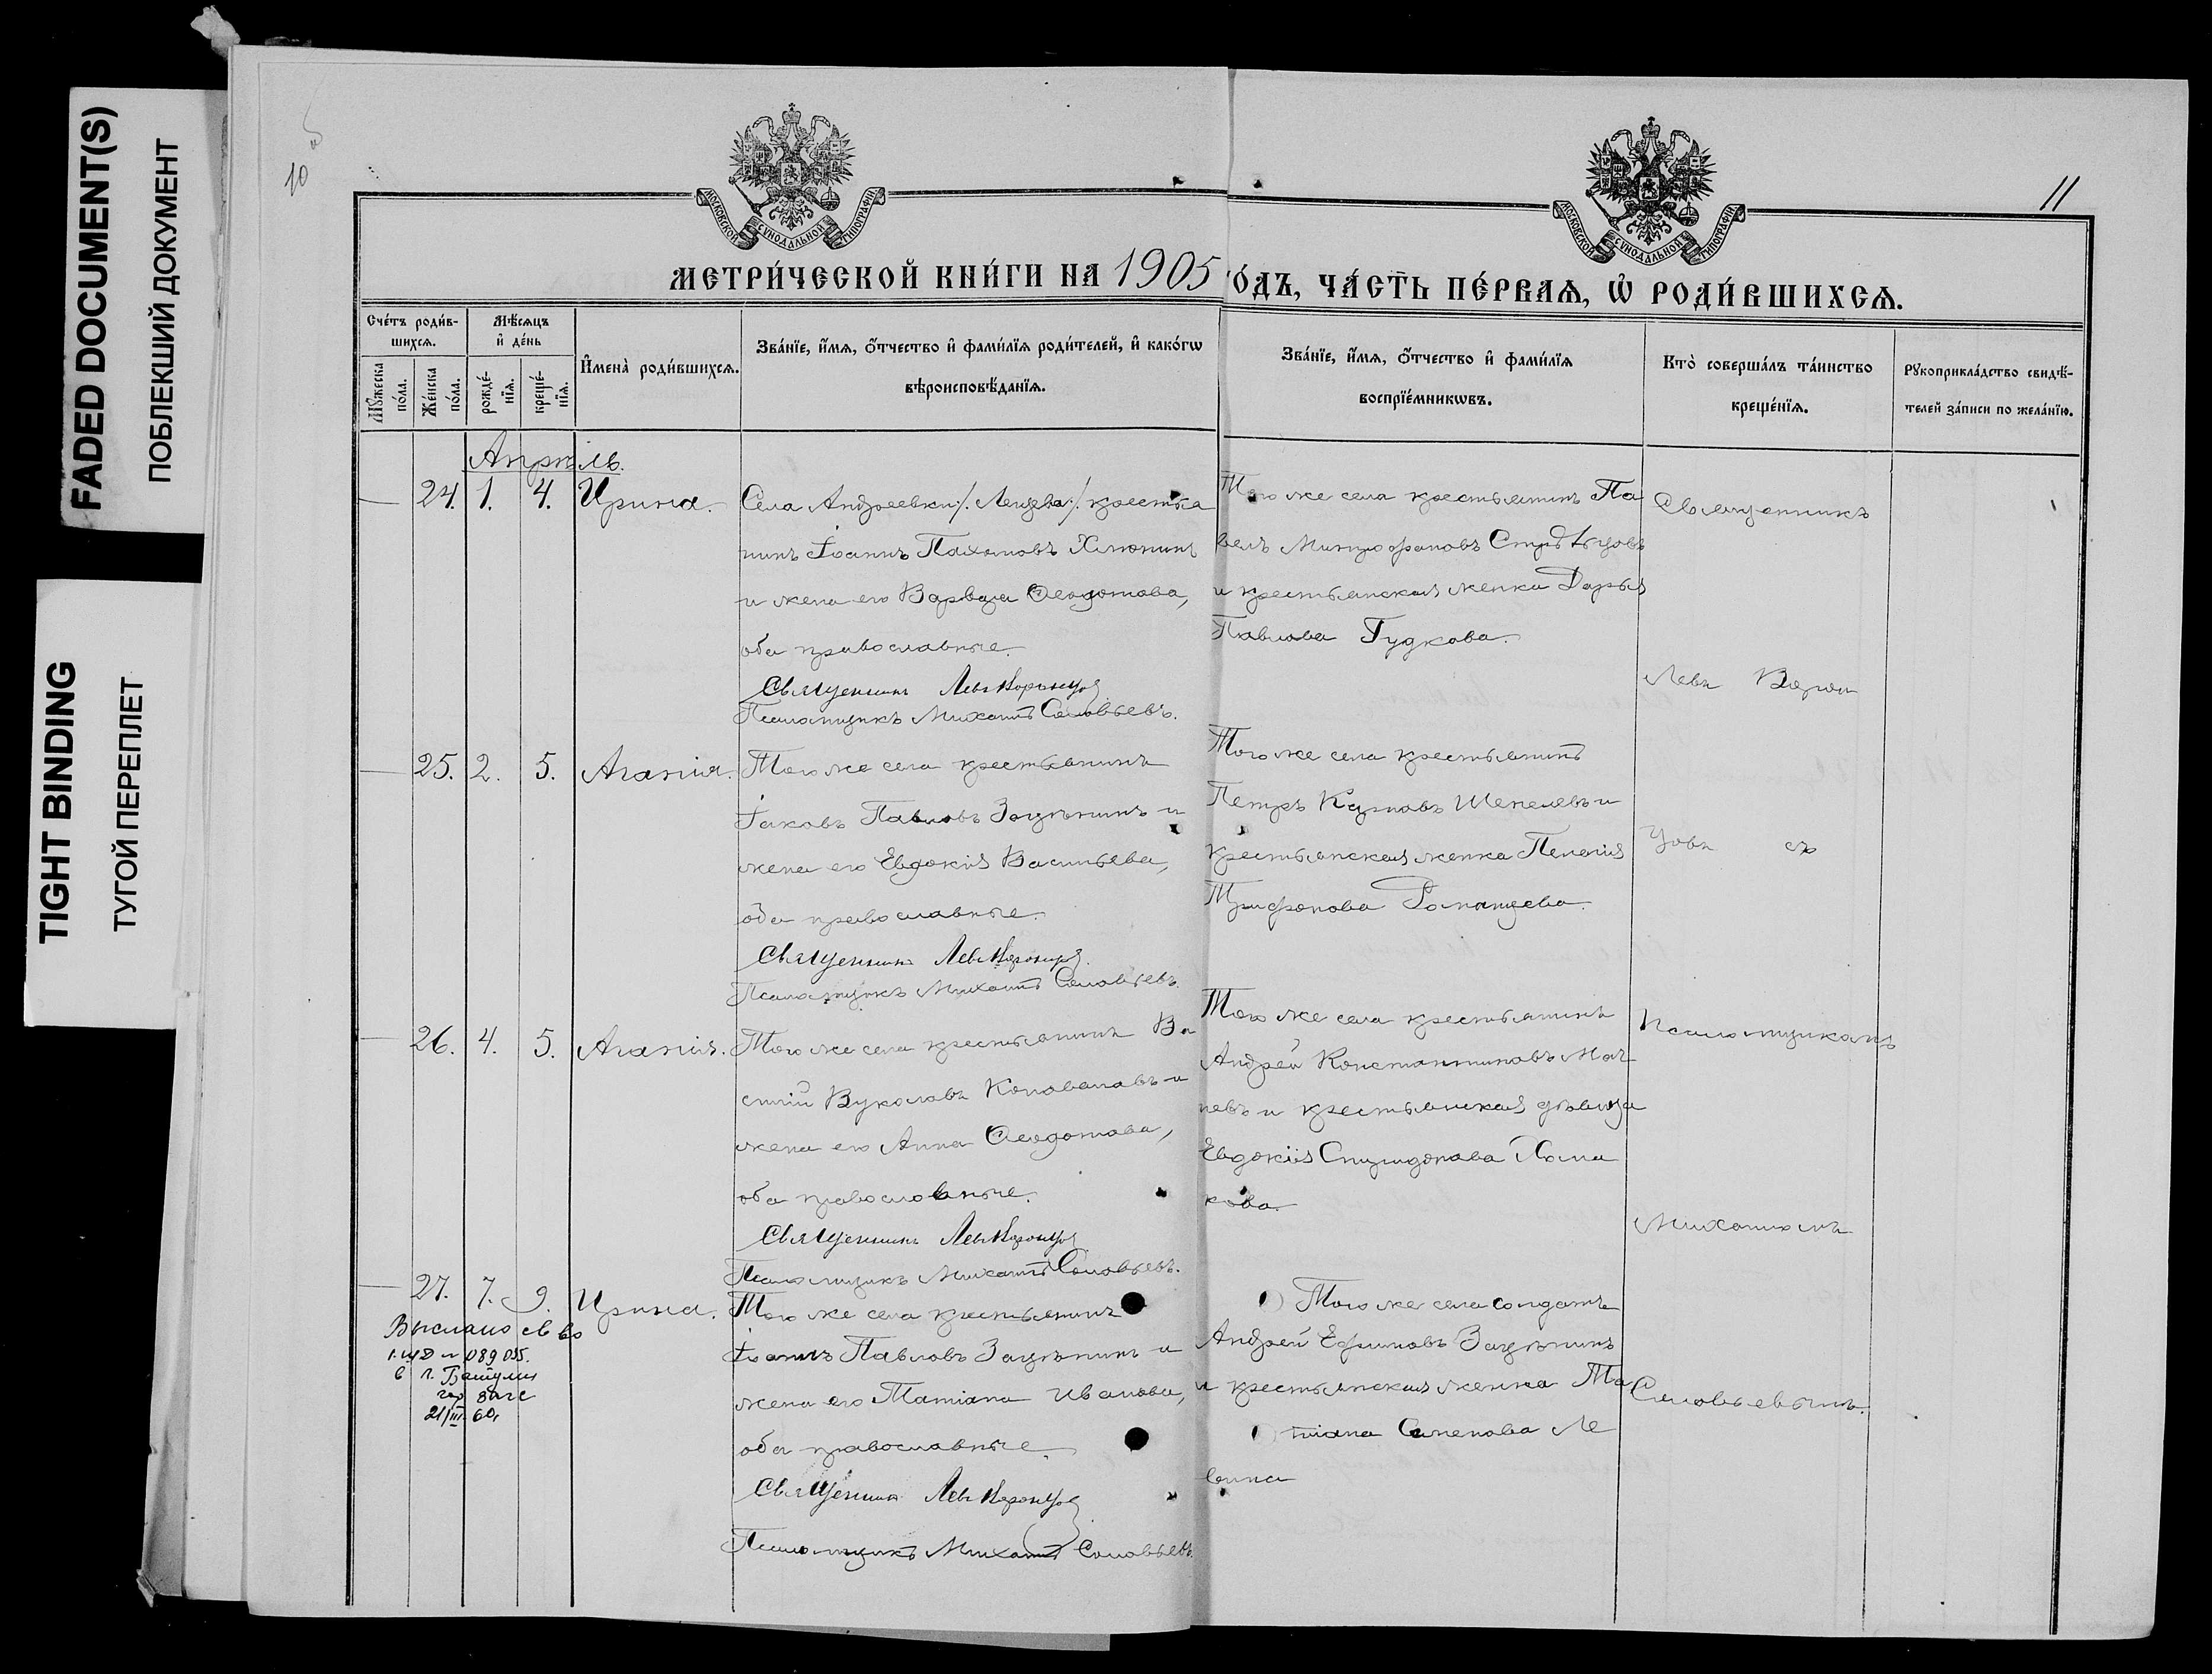 FADED DOCUMENT(S)
ПОБЛЕКШИЙ ДОКУМЕНТ
TIGHT BINDING
ТУГОЙ ПЕРЕПЛЕТ
10
11
МОСКОВСКОЙ СѴНОДАЛЬНОЙ ТИПОГРАФІИ
МОСКОВСКОЙ СѴНОДАЛЬНОЙ ТИПОГРАФІИ
МЕТРИ́ЧЕСКОЙ КНИ́ГИ НА 1905 ГО́ДЪ, ЧА́СТЬ ПЕ́РВАѦ, Ѡ҆ РОДИ́ВШИХСѦ.
Сче́тъ роди́в-
шихсѧ.
Мꙋ́жеска
по́ла.
Же́нска
по́ла.
Мѣ́сѧцъ
и҆ де́нь
рожде́-
нїѧ.
креще́-
нїѧ.
И҆мена̀ роди́вшихсѧ.
Зва́нїе, и҆́мѧ, ѻ҆́тчество и҆ фами́лїѧ роди́телей, и҆ како́гѡ
вѣроисповѣ́данїѧ.
Зва́нїе, и҆́мѧ, ѻ҆́тчество и҆ фами́лїѧ
воспрїе́мникѡвъ.
Кто̀ соверша́лъ та́инство
креще́нїѧ.
Рꙋкоприкла́дство свидѣ́-
телей за́писи по жела́нїю.
Апрѣль.
24. 1. 4. Ирина.
Села Андреевки крестья
нинъ Іоаннъ Пахомовъ Хлюпинъ
и жена его Варвара Ѳеодотова,
оба православные.
Священникъ Левъ Воронцовъ
Псаломщикъ Михаилъ Соловьевъ.
Того же села крестьянинъ Па
велъ Митрофановъ Стрѣльцовъ
и крестьянская женка Дарья
Павлова Гудкова.
Священникъ
Левъ Ворон
25. 2. 5. Агапія.
Того же села крестьянинъ
Іаковъ Павловъ Зацѣпинъ и
жена его Евдокія Васильева,
оба православные.
Священникъ Левъ Воронцовъ
Псаломщикъ Михаилъ Соловьевъ.
Того же села крестьянинъ
Петръ Карповъ Шепелевъ и
крестьянская женка Пелагія
Трифонова Романцева.
цовъ съ
26. 4. 5. Агапія.
Того же села крестьянинъ Ва
силій Вуколовъ Коноваловъ и
жена его Анна Ѳеодотова,
оба православные.
Священникъ Левъ Воронцовъ
Псаломщикъ Михаилъ Соловьевъ.
Того же села крестьянинъ
Андрей Константиновъ
и крестьянская дѣвица
Евдокія Спиридонова Хома
кова.
Псаломщикомъ
Михаиломъ
27. 7. 9. Ирина.
Выслано св во
089035.
21/III 60г
Того же села крестьянинъ
Іоаннъ Павловъ Зацѣпинъ и
жена его Татіана Иванова,
оба православные.
Священникъ Левъ Воронцовъ
Псаломщикъ Михаилъ Соловьевъ.
Того же села солдатъ
Андрей Ефимовъ Зацѣпинъ
и крестьянская женка Та
тіана Семенова Ле
вина
Соловьевымъ.